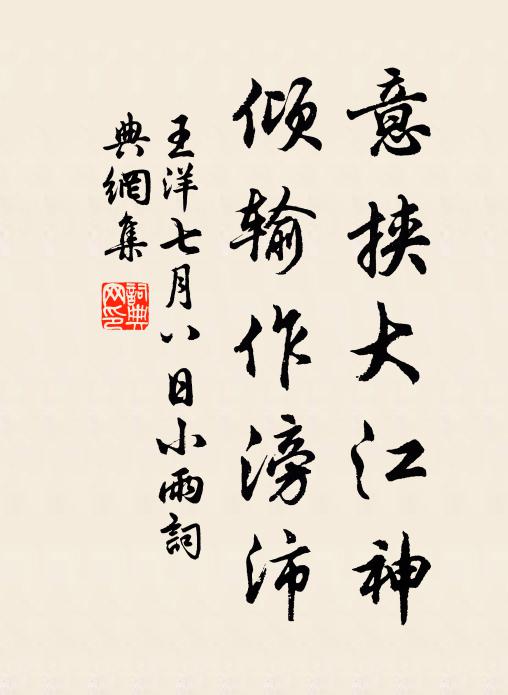 意挟大江神
倾输作滂沛
王洋七月八日小雨詞
典網集
詞典网印